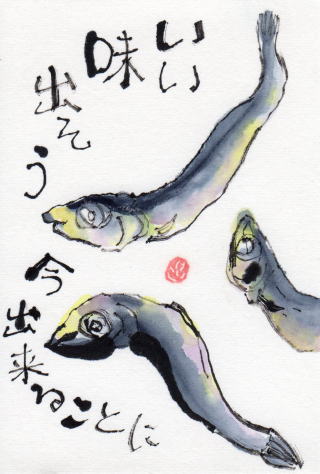 いい
味
出そう
今出来ることに